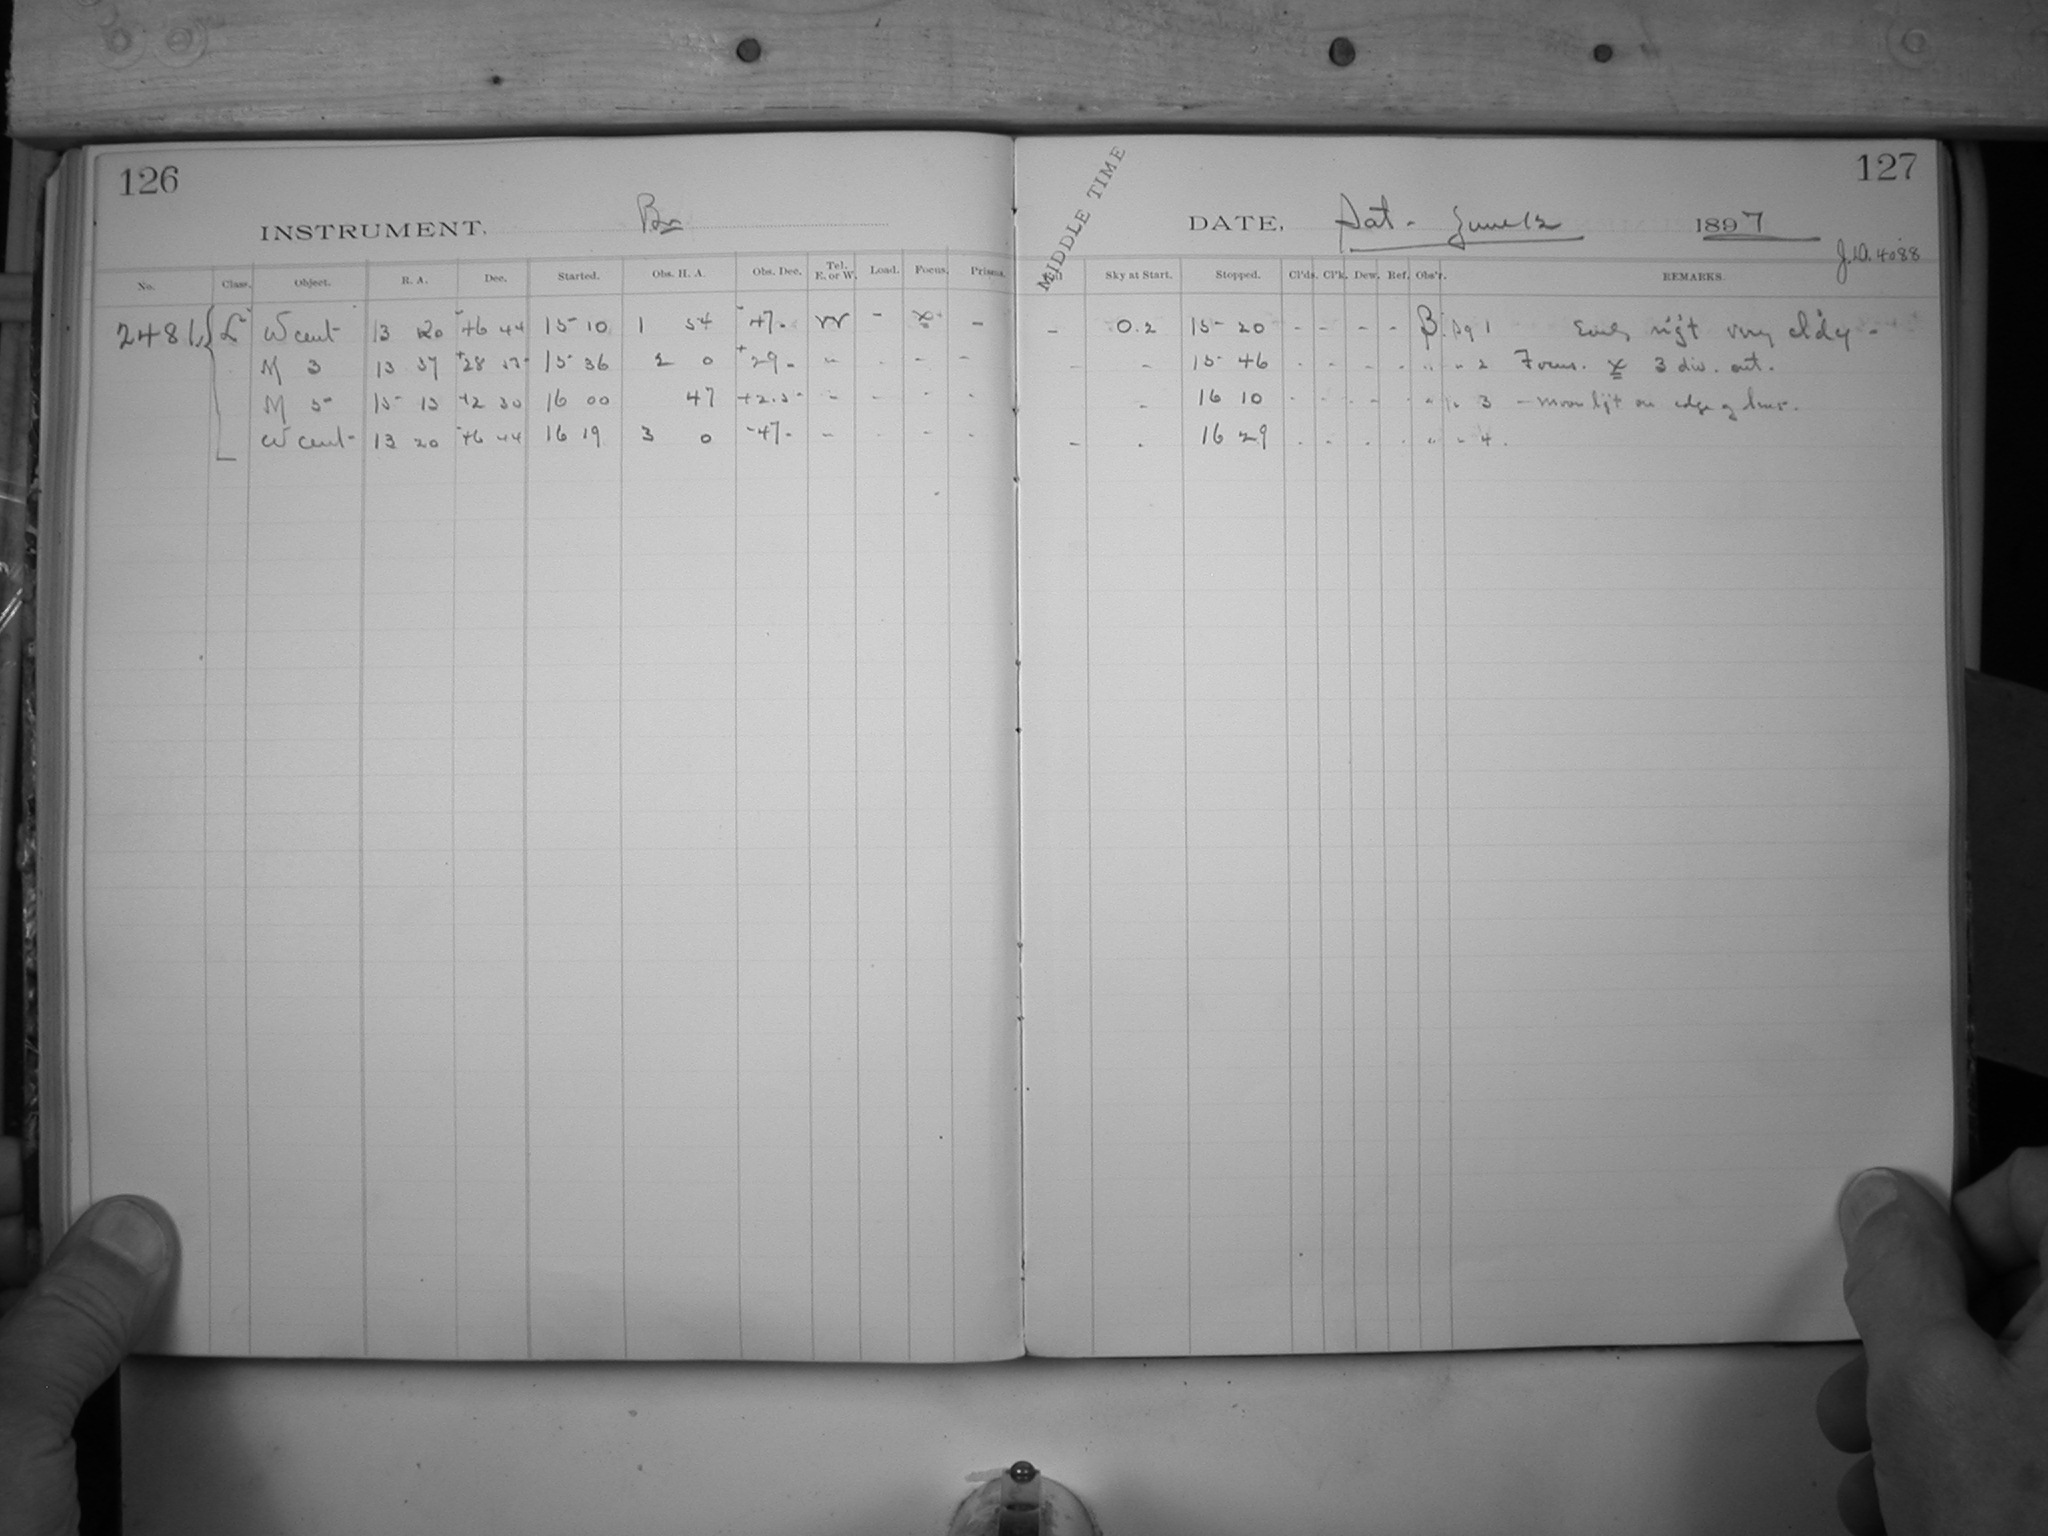 126
INSTRUMENT, Br
No. Class. Object. R. A. Dec. Started. Obs. H. A. Obs. Dec. Tel. E. or W. Load. Focus. Prisms.
2481 L ω cent 13 20 -46 44 15 10 1 54 -47. W - - 
M 3 13 37 +28 53 15 36 2 0 +29. - - - -
M 5 15 13 +2 30 16 00 47 +2.5 - - - -
ω cent 13 20 -46 44 16 19 3 0 -47. - - - -
127
MIDDLE TIME
DATE, Sat. June 12 1897
J.D. 4088
Sky at Start. Stopped. Cl'ds. Cl'k. Dew. Ref. Obs'r. REMARKS.
- 0.2 15 20 - - - - β Sq 1 Early night very cl'dy -
- - 15 46 - - - - " " 2 Focus. 3 div. out.
- 16 10 - - - - " " 3 - moon lgt on edge of lens.
- - 16 29 - - - - " " 4.